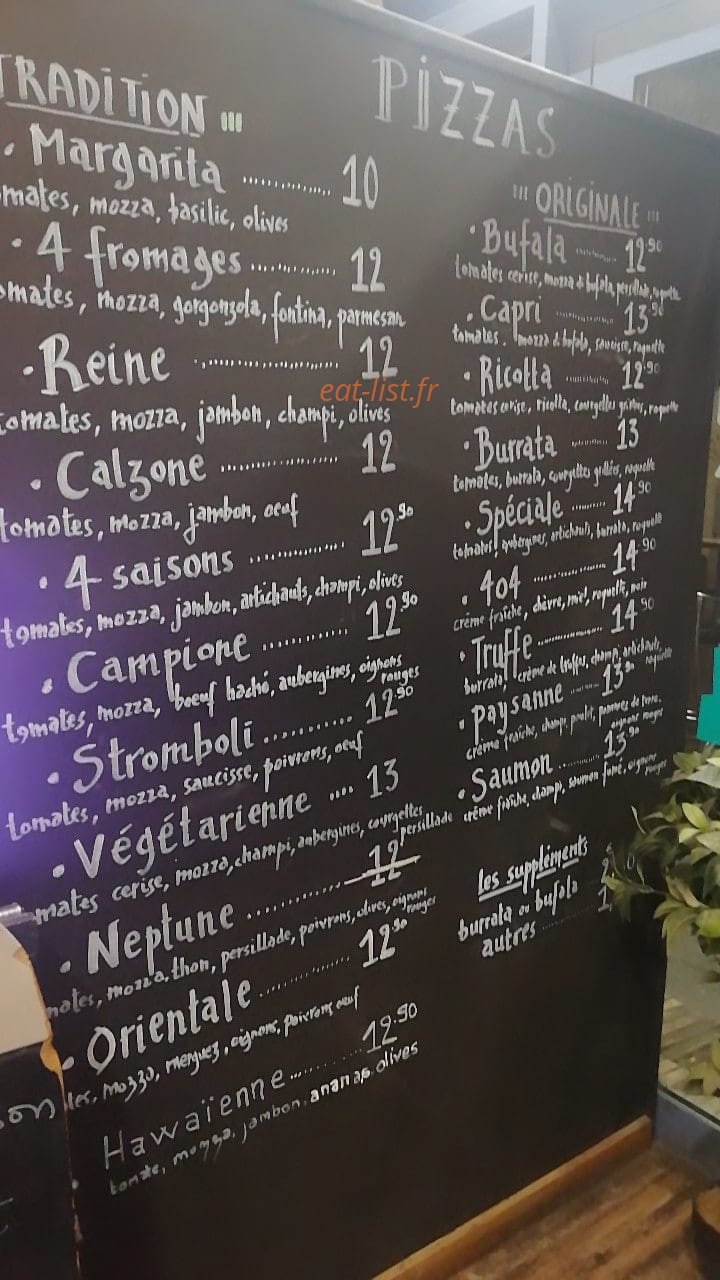 TRADITION
• Margarita ............ 10
mozza, basilic, olives
• 4 fromages ............ 12
mozza, gorgonzola, fontina, parmesan
• Reine ............ 12
tomates, mozza, jambon, champi, olives
• Calzone ............ 12
tomates, mozza, jambon, oeuf
• 4 saisons ............ 12.90
tomates, mozza, jambon, artichauts, champi, olives
• Campione ............ 12.90
tomates, mozza, boeuf haché, aubergines, oignons rouges
• Stromboli ............ 12.90
tomates, mozza, saucisse, poivrons, oeuf
• Végétarienne .... 13
cerise, mozza, champi, aubergines, courgettes persillade
• Neptune ............ 12
mozza, thon, persillade, poivrons, olives, oignons rouges
• Orientale ............ 12.90
mozza, merguez, oignons, poivrons oeuf
Hawaïenne ............ 12.90
tomate, mozza, jambon, ananas, olives
PIZZAS
ORIGINALE
• Bufala ........ 12.90
tomates cerise, mozza di bufala, persillade, roquette
• Capri ........ 13.90
tomates, mozza di bufala, saucisse, roquette
• Ricotta ........ 12.90
tomates cerise, ricotta, courgettes grillées, roquette
• Burrata ........ 13
tomates, burrata, courgettes grillées, roquette
• Spéciale ........ 14.90
tomates, aubergines, artichauts, burrata, roquette
• 404 ............ 14.90
crème fraîche, chèvre, miel, roquette, noix
• Truffe ............ 14.90
burrata, crème de truffes, champ, artichauts, roquette
• paysanne ..... 13.90
crème fraîche, champ, poulet, pommes de terre, oignons rouges
• Saumon ........ 13.90
crème fraîche, champ, saumon fumé, oignons rouges
les suppléments
burrata ou bufala
autres
eat-list.fr